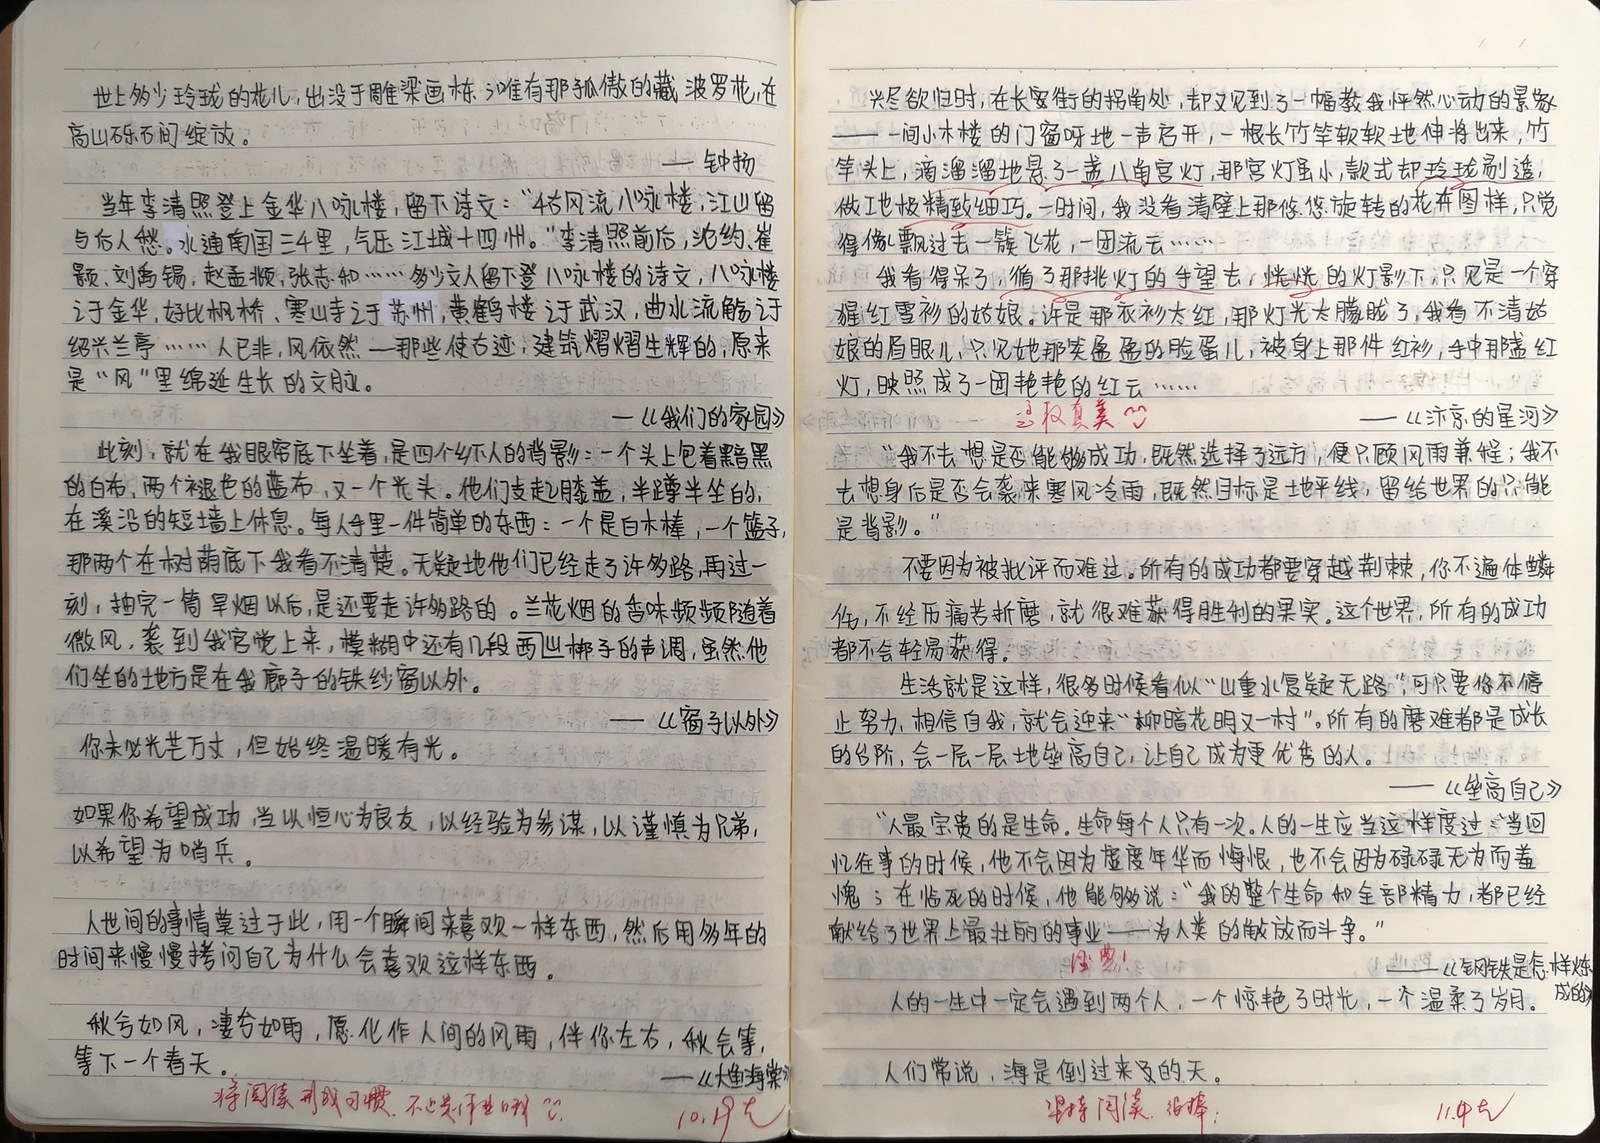 世上多少玲珑的花儿,出没于雕梁画栋;唯有那孤傲的藏波罗花,在
高山砾石间绽放。
—— 钟扬
当年李清照登上金华八咏楼,留下诗文:“千古风流八咏楼,江山留
与后人愁。水通南国三千里,气压江城十四州。”李清照前后,沈约、崔
颢、刘禹锡,赵孟頫,张志和……多少文人留下登八咏楼的诗文,八咏楼
于金华,好比枫桥、寒山寺于苏州,黄鹤楼于武汉,曲水流觞于
绍兴兰亭……人已非,风依然——那些使古迹,建筑熠熠生辉的,原来
是“风”里绵延生长的文脉。
—《我们的家园》
此刻,就在我眼帘底下坐着,是四个乡下人的背影:一个头上包着黯黑
的白布,两个褪色的蓝布,又一个光头。他们支起膝盖,半蹲半坐的,
在溪沿的短墙上休息。每人手里一件简单的东西:一个是白木棒,一个篮子,
那两个在树荫底下我看不清楚。无疑地他们已经走了许多路,再过一
刻,抽完一筒旱烟以后,是还要走许多路的。兰花烟的香味频频随着
微风,袭到我官觉上来,模糊中还有几段西山梆子的声调,虽然他
们坐的地方是在我廊子的铁纱窗以外。
——《窗子以外》
你未必光芒万丈,但始终温暖有光。
如果你希望成功,当以恒心为良友,以经验为参谋,以谨慎为兄弟,
以希望为哨兵。
人世间的事情莫过于此,用一个瞬间来喜欢一样东西,然后用多年的
时间来慢慢拷问自己为什么会喜欢这样东西。
秋兮如风,凄兮如雨,愿化作人间的风雨,伴你左右,秋会等,
等下一个春天。
—《大鱼海棠》
将阅读形成习惯,不止是作业哦
10.19
兴尽欲归时,在长客街的拐角处,却又见到了一幅教我怦然心动的景象
——一间小木楼的门窗呀地一声启开,一根长竹竿软软地伸将出来,竹
竿头上,滴溜溜地悬了一盏八角宫灯,那宫灯虽小,款式却玲珑剔透,
做工也极精致细巧。一时间,我没看清壁上那悠悠旋转的花布图样,只觉
得像飘过去一簇飞花,一团流云……
我看得呆了,循了那挑灯的手望去,恍恍的灯影下,只见是一个穿
猩红雪衫的姑娘。许是那衣衫太红,那灯光太朦胧了,我看不清姑
娘的眉眼儿,只见她那笑盈盈的脸蛋儿,被身上那件红衫,手中那盏红
灯,映照成了一团艳艳的红云……
这段真美
——《汴京的星河》
“我不去想是否能够成功,既然选择了远方,便只顾风雨兼程;我不
去想身后是否会袭来寒风冷雨,既然目标是地平线,留给世界的只能
是背影。”
不要因为被批评而难过。所有的成功都要穿越荆棘,你不遍体鳞
伤,不经历痛苦折磨,就很难获得胜利的果实。这个世界,所有的成功
都不会轻易获得。
生活就是这样,很多时候看似“山重水复疑无路”,可只要你不停
止努力,相信自我,就会迎来“柳暗花明又一村”。所有的磨难都是成长
的台阶,会一层一层地垫高自己,让自己成为更优秀的人。
——《垫高自己》
“人最宝贵的是生命。生命每个人只有一次。人的一生应当这样度过:当回
忆往事的时候,他不会因为虚度年华而悔恨,也不会因为碌碌无为而羞
愧;在临死的时候,他能够说:“我的整个生命和全部精力,都已经
献给了世界上最壮丽的事业——为人类的解放而斗争。”
经典!
——《钢铁是怎样炼
成的》
人的一生中一定会遇到两个人,一个惊艳了时光,一个温柔了岁月。
人们常说,海是倒过来的天。
坚持阅读,很棒!
11.4